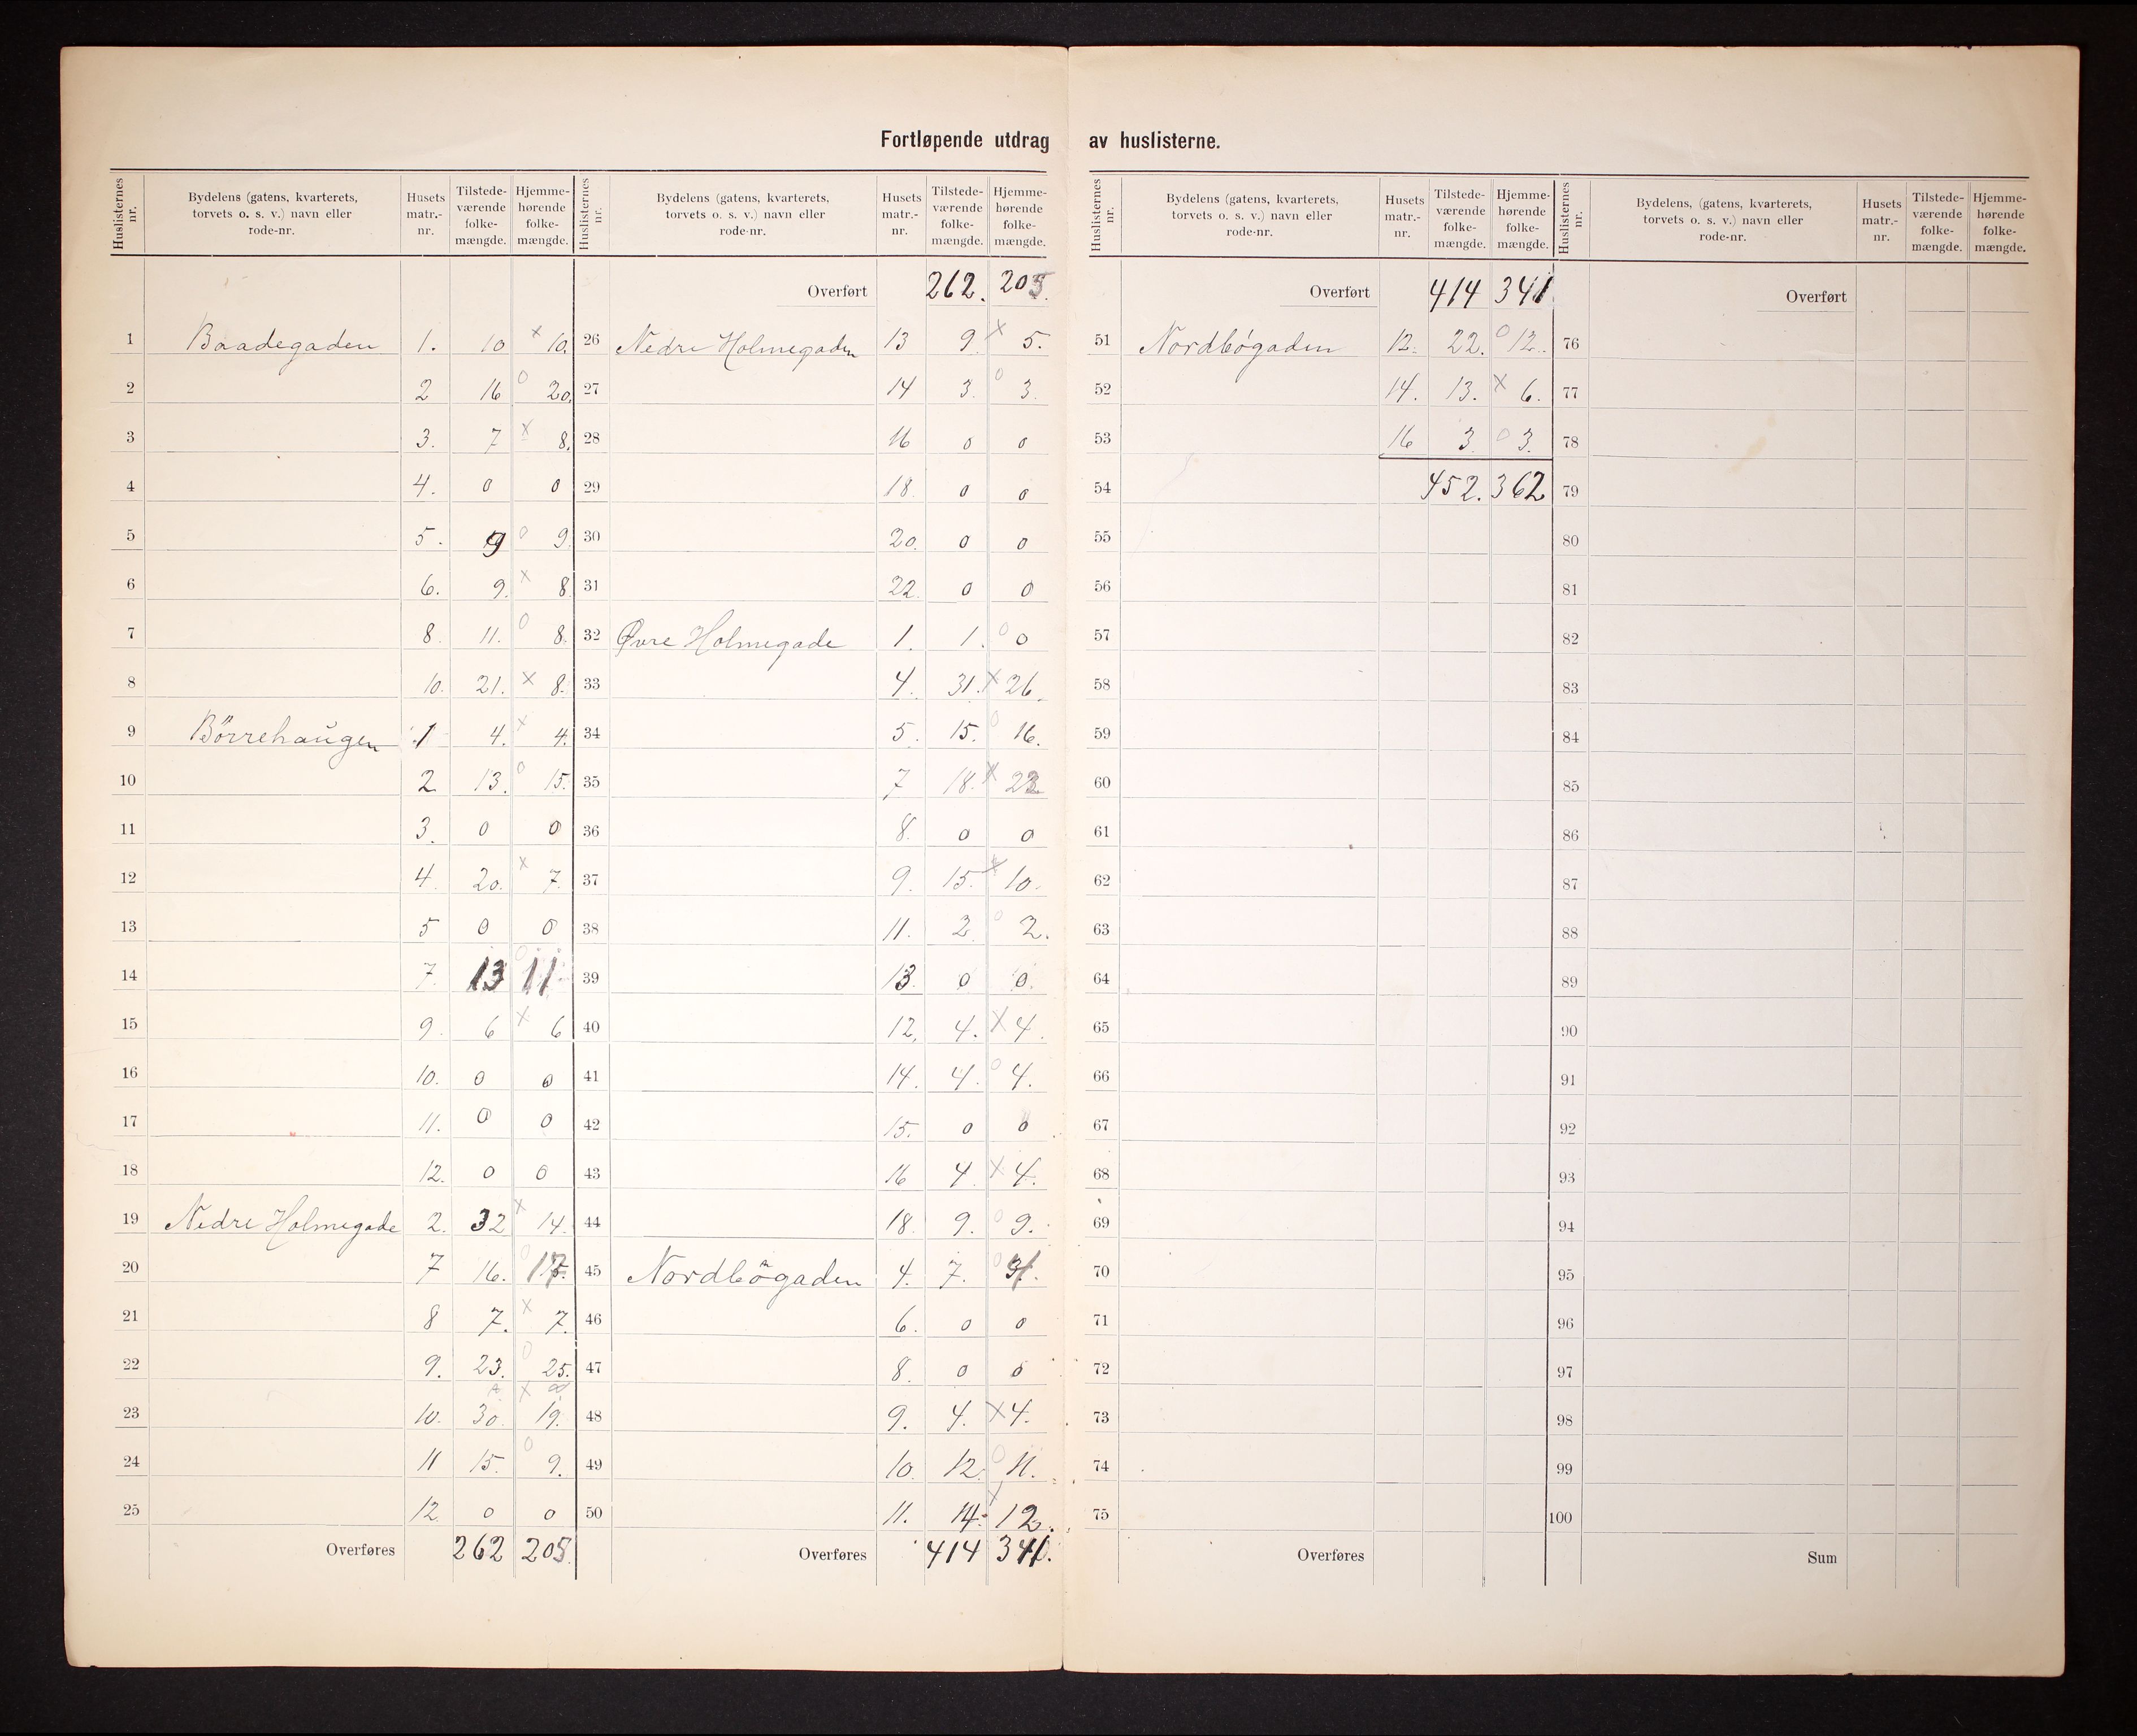 Fortløpende utdrag av huslisterne.
Huslisternes nr. Bydelens (gatens, kvarterets, torvets o. s. v.) navn eller rode-nr. Husets matr.-nr. Tilstede-værende folke-mængde. Hjemme-hørende folke-mængde.
1 Baadegaden 1. 10 x 10.
2 2 16 o 20.
3 3. 7 x 8.
4 4. 0 0
5 5. 9 o 9.
6 6. 9. x 8.
7 8. 11. o 8.
8 10. 21. x 8.
9 Börrehaugen 1 4. x 4.
10 2 13. o 15.
11 3. 0 0
12 4. 20. x 7.
13 5 0 0
14 7. 13 o 11
15 9. 6 x 6
16 10. 0 0
17 11. 0 0
18 12. 0 0
19 Nedre Holmegade 2. 32 x 14.
20 7 16. o
21 8 7. x 7.
22 9. 23. o 25.
23 10. 30. x 19.
24 11 15. o 9.
25 12. 0 0
Overføres 262 205.
Huslisternes nr. Bydelens (gatens, kvarterets, torvets o. s. v.) navn eller rode-nr. Husets matr.-nr. Tilstede-værende folke-mængde. Hjemme-hørende folke-mængde.
Overført 262. 205.
26 Nedre Holmegaden 13 9. x 5.
27 14 3. o 3.
28 16 0 0
29 18. 0 0
30 20. 0 0
31 22. 0 0
32 Øvre Holmegade 1. 1. o 0
33 4. 31. x 26.
34 5. 15. o 16.
35 7 18. x
36 8. 0 0
37 9. 15. x 10.
38 11. 2 o 2.
39 13. 0 0.
40 12, 4. x 4.
41 14. 4. o 4.
42 15. 0 0
43 16 4 x 4.
44 18. 9. o 9.
45 Nordbögaden 4. 7. o
46 6. 0 0
47 8. 0 0
48 9. 4. x 4.
49 10. 12. o 11.
50 11. 14. x 12.
Overføres 414 341.
Huslisternes nr. Bydelens (gatens, kvarterets, torvets o. s. v.) navn eller rode-nr. Husets matr.-nr. Tilstede-værende folke-mængde. Hjemme-hørende folke-mængde.
Overført 414 341.
51 Nordbögaden 12. 22. o 12.
52 14. 13. x 6.
53 16 3. o 3.
54 452. 362
55
56
57
58
59
60
61
62
63
64
65
66
67
68
69
70
71
72
73
74
75
Overføres
Huslisternes nr. Bydelens, (gatens, kvarterets, torvets o. s. v.) navn eller rode-nr. Husets matr.-nr. Tilstede-værende folke-mængde. Hjemme-hørende folke-mængde.
Overført
76
77
78
79
80
81
82
83
84
85
86
87
88
89
90
91
92
93
94
95
96
97
98
99
100
Sum